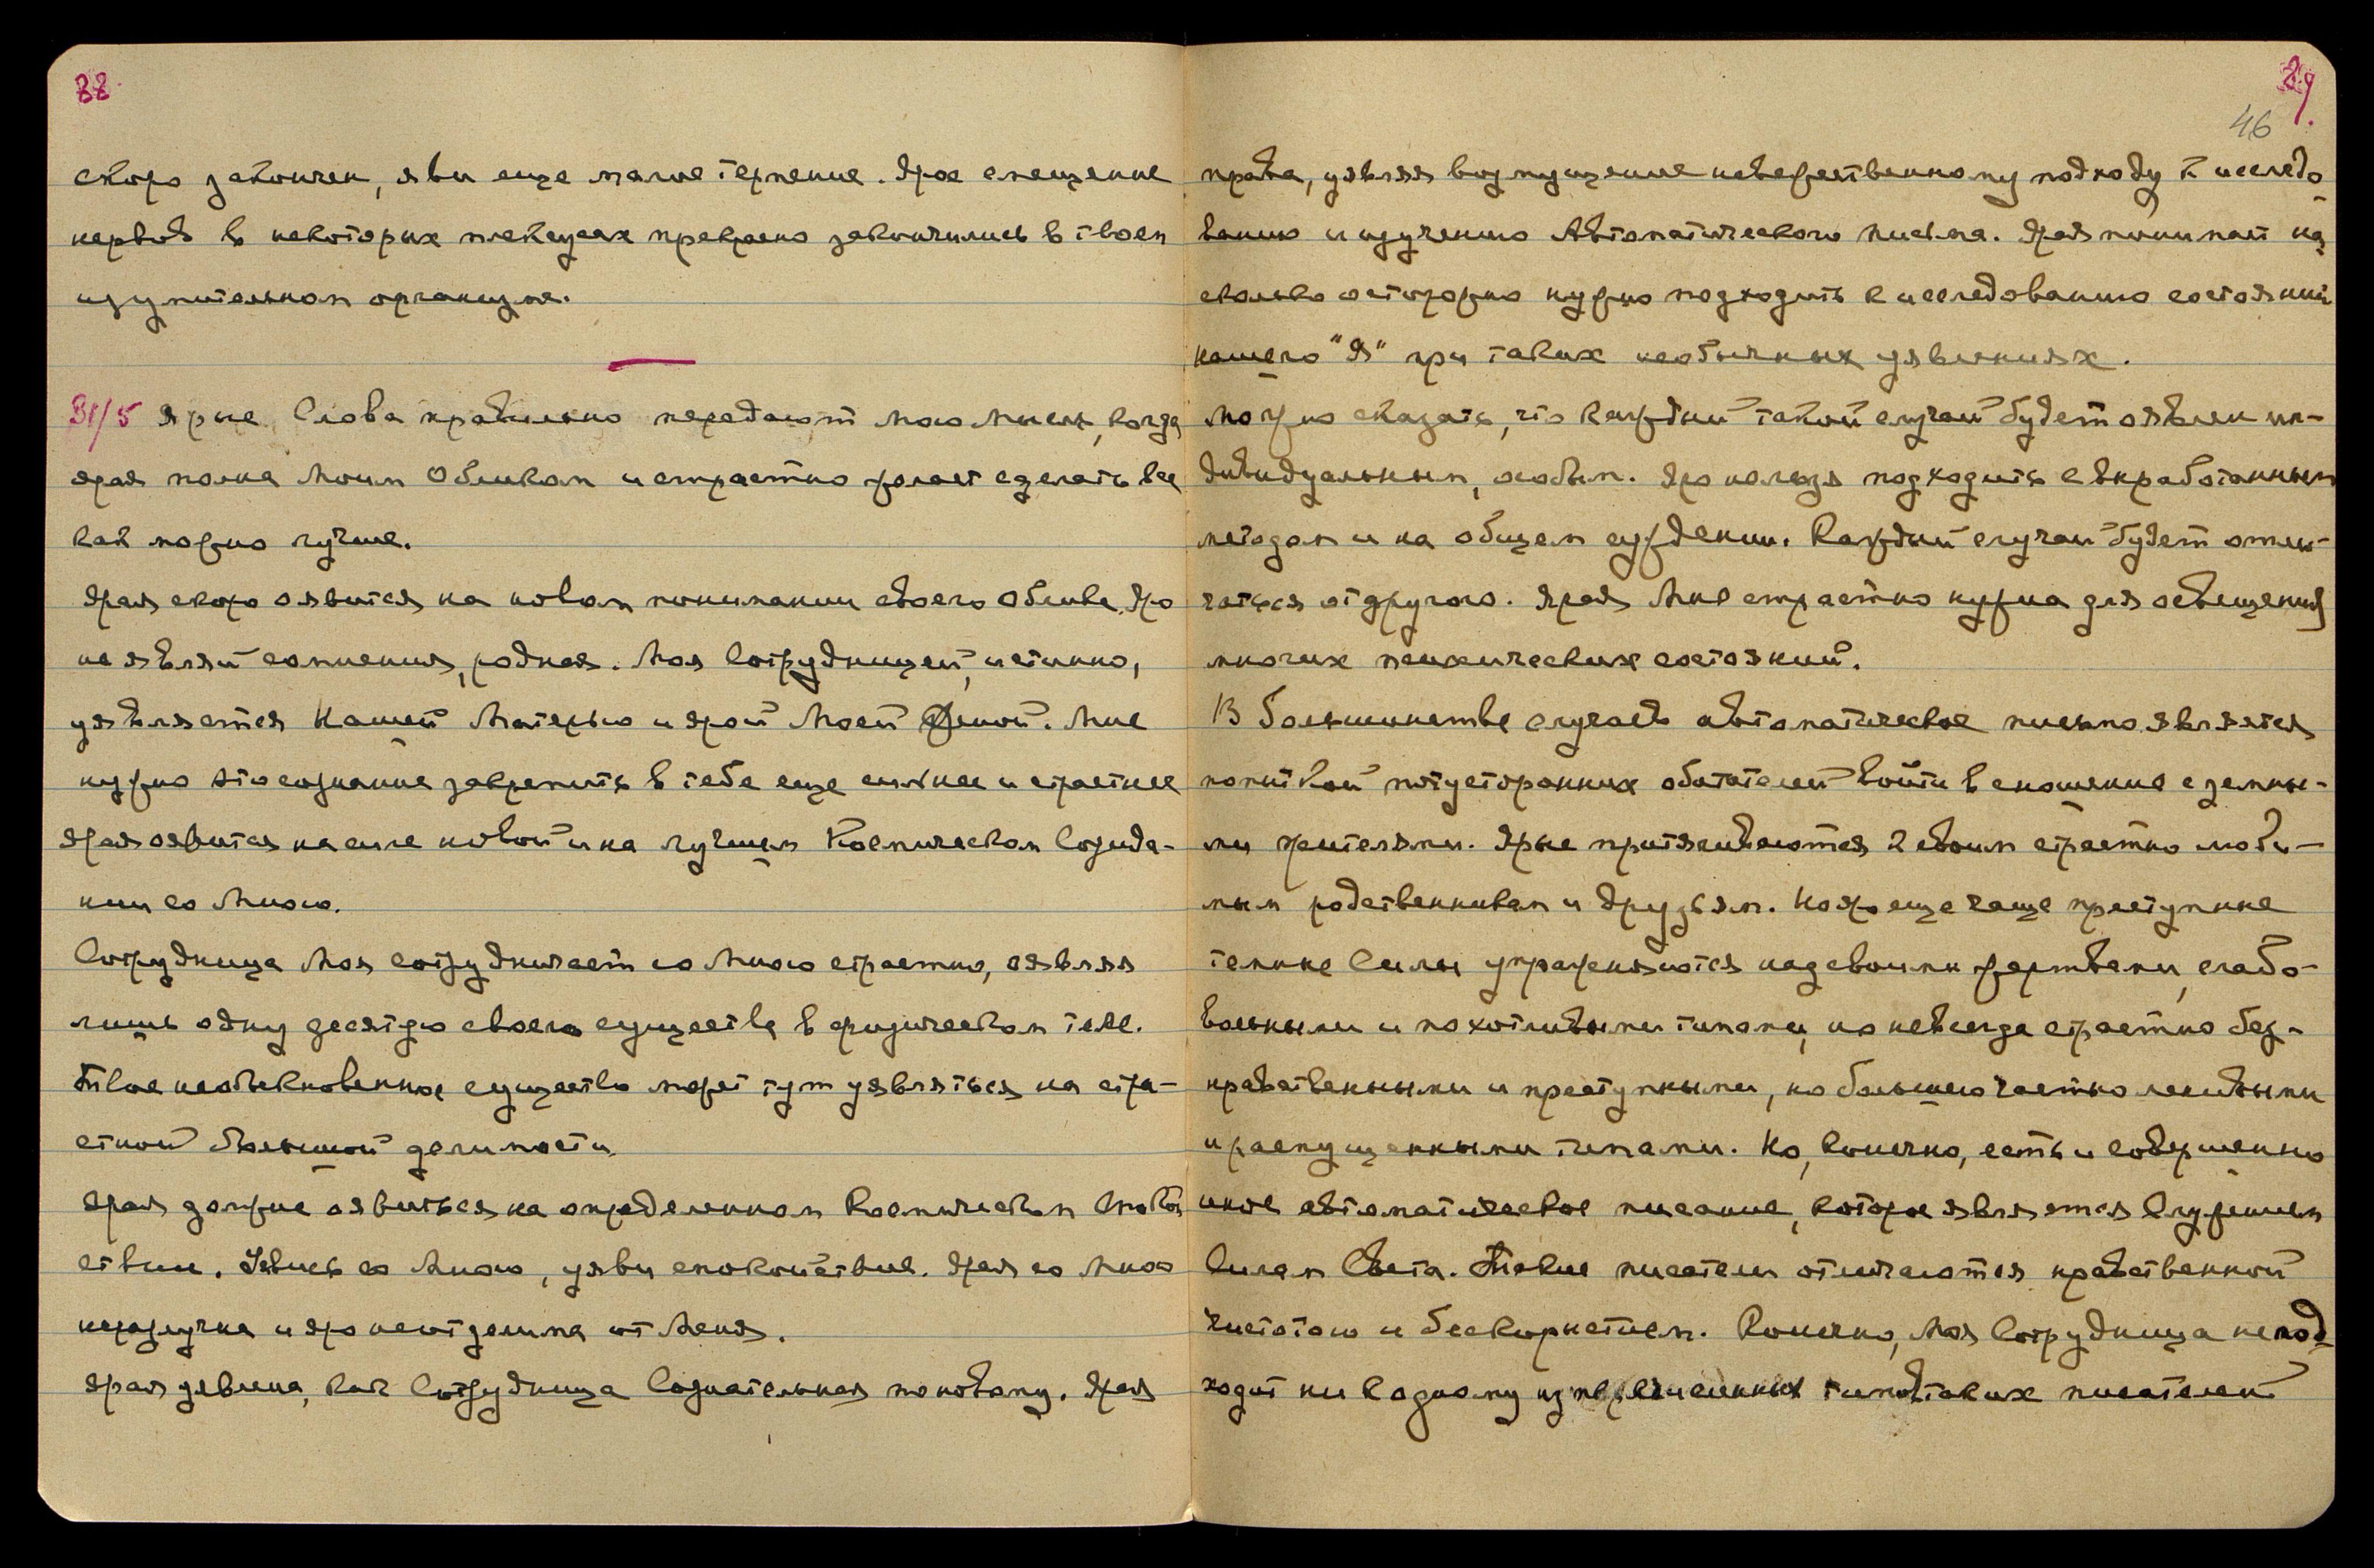 88
скоро закончен, яви еще малое терпение. Ярое смещение
нервов в некоторых плексусах прекрасно закончились в твоем
изумительном организме.
31/5 Ярые Слова правильно передают Мою Мысль, когда
ярая полна Моим Обликом и страстно желает сделать все
как можно лучше.
Ярая скоро оявится на новом понимании своего Облика, Яро
не являй сомнения, родная. Моя Сотрудницей, истинно,
уявляется Нашей Матерью и ярой Моей Женой. Мне
нужно это сознание закрепить в тебе еще сильнее и страстнее
Ярая оявится на силе новой и на лучшем Космическом Созида-
нии со Мною.
Сотрудница Моя сотрудничает со Мною страстно, оявляя
лишь одну десятую своего существа в физическом теле.
Твое необыкновенное существо может тут уявляться на стра-
стной большой делимости.
Ярая должна оявиться на определенном Космическом Спокой
ствии. Явись со Мною, уяви спокойствие. Ярая со Мною
неразлучна и яро неотделима от Меня.
Ярая уявлена, как Сотрудница Сознательная по новому. Ярая
89.
46
права, уявляя возмущение невежественному подходу к исследо-
ванию и изучению Автоматического письма. Ярая понимает на
сколько осторожно нужно подходить к исследованию состояний
нашего "Я" при таких необычных уявлениях.
Можно сказать, что каждый такой случай будет оявлен ин-
дивидуальным, особым. Яро нельзя подходить с выработанным
методом и на общем суждении. Каждый случай будет отли-
чаться от другого. Ярая Мне страстно нужна для освещения
многих психических состояний.
В большинстве случаев автоматическое письмо является
попыткой потусторонних обитателей войти в сношение с земны-
ми жителями. Ярые притягиваются к своим страстно люби-
мым родственникам и друзьям. Но яро еще чаще преступные
темные Силы упражняются над своими жертвами, слабо-
вольными и похотливыми типами, но не всегда страстно без-
нравственными и преступными, но большею частью ленивыми
и распущенными типами. Но, конечно, есть и совершенно
иное автоматическое писание, которое является Служением
Силам Света. Такие писатели отличаются нравственной
чистотою и бескорыстием. Конечно, Моя Сотрудница не под-
ходит ни к одному из перечисленных типов таких писателей